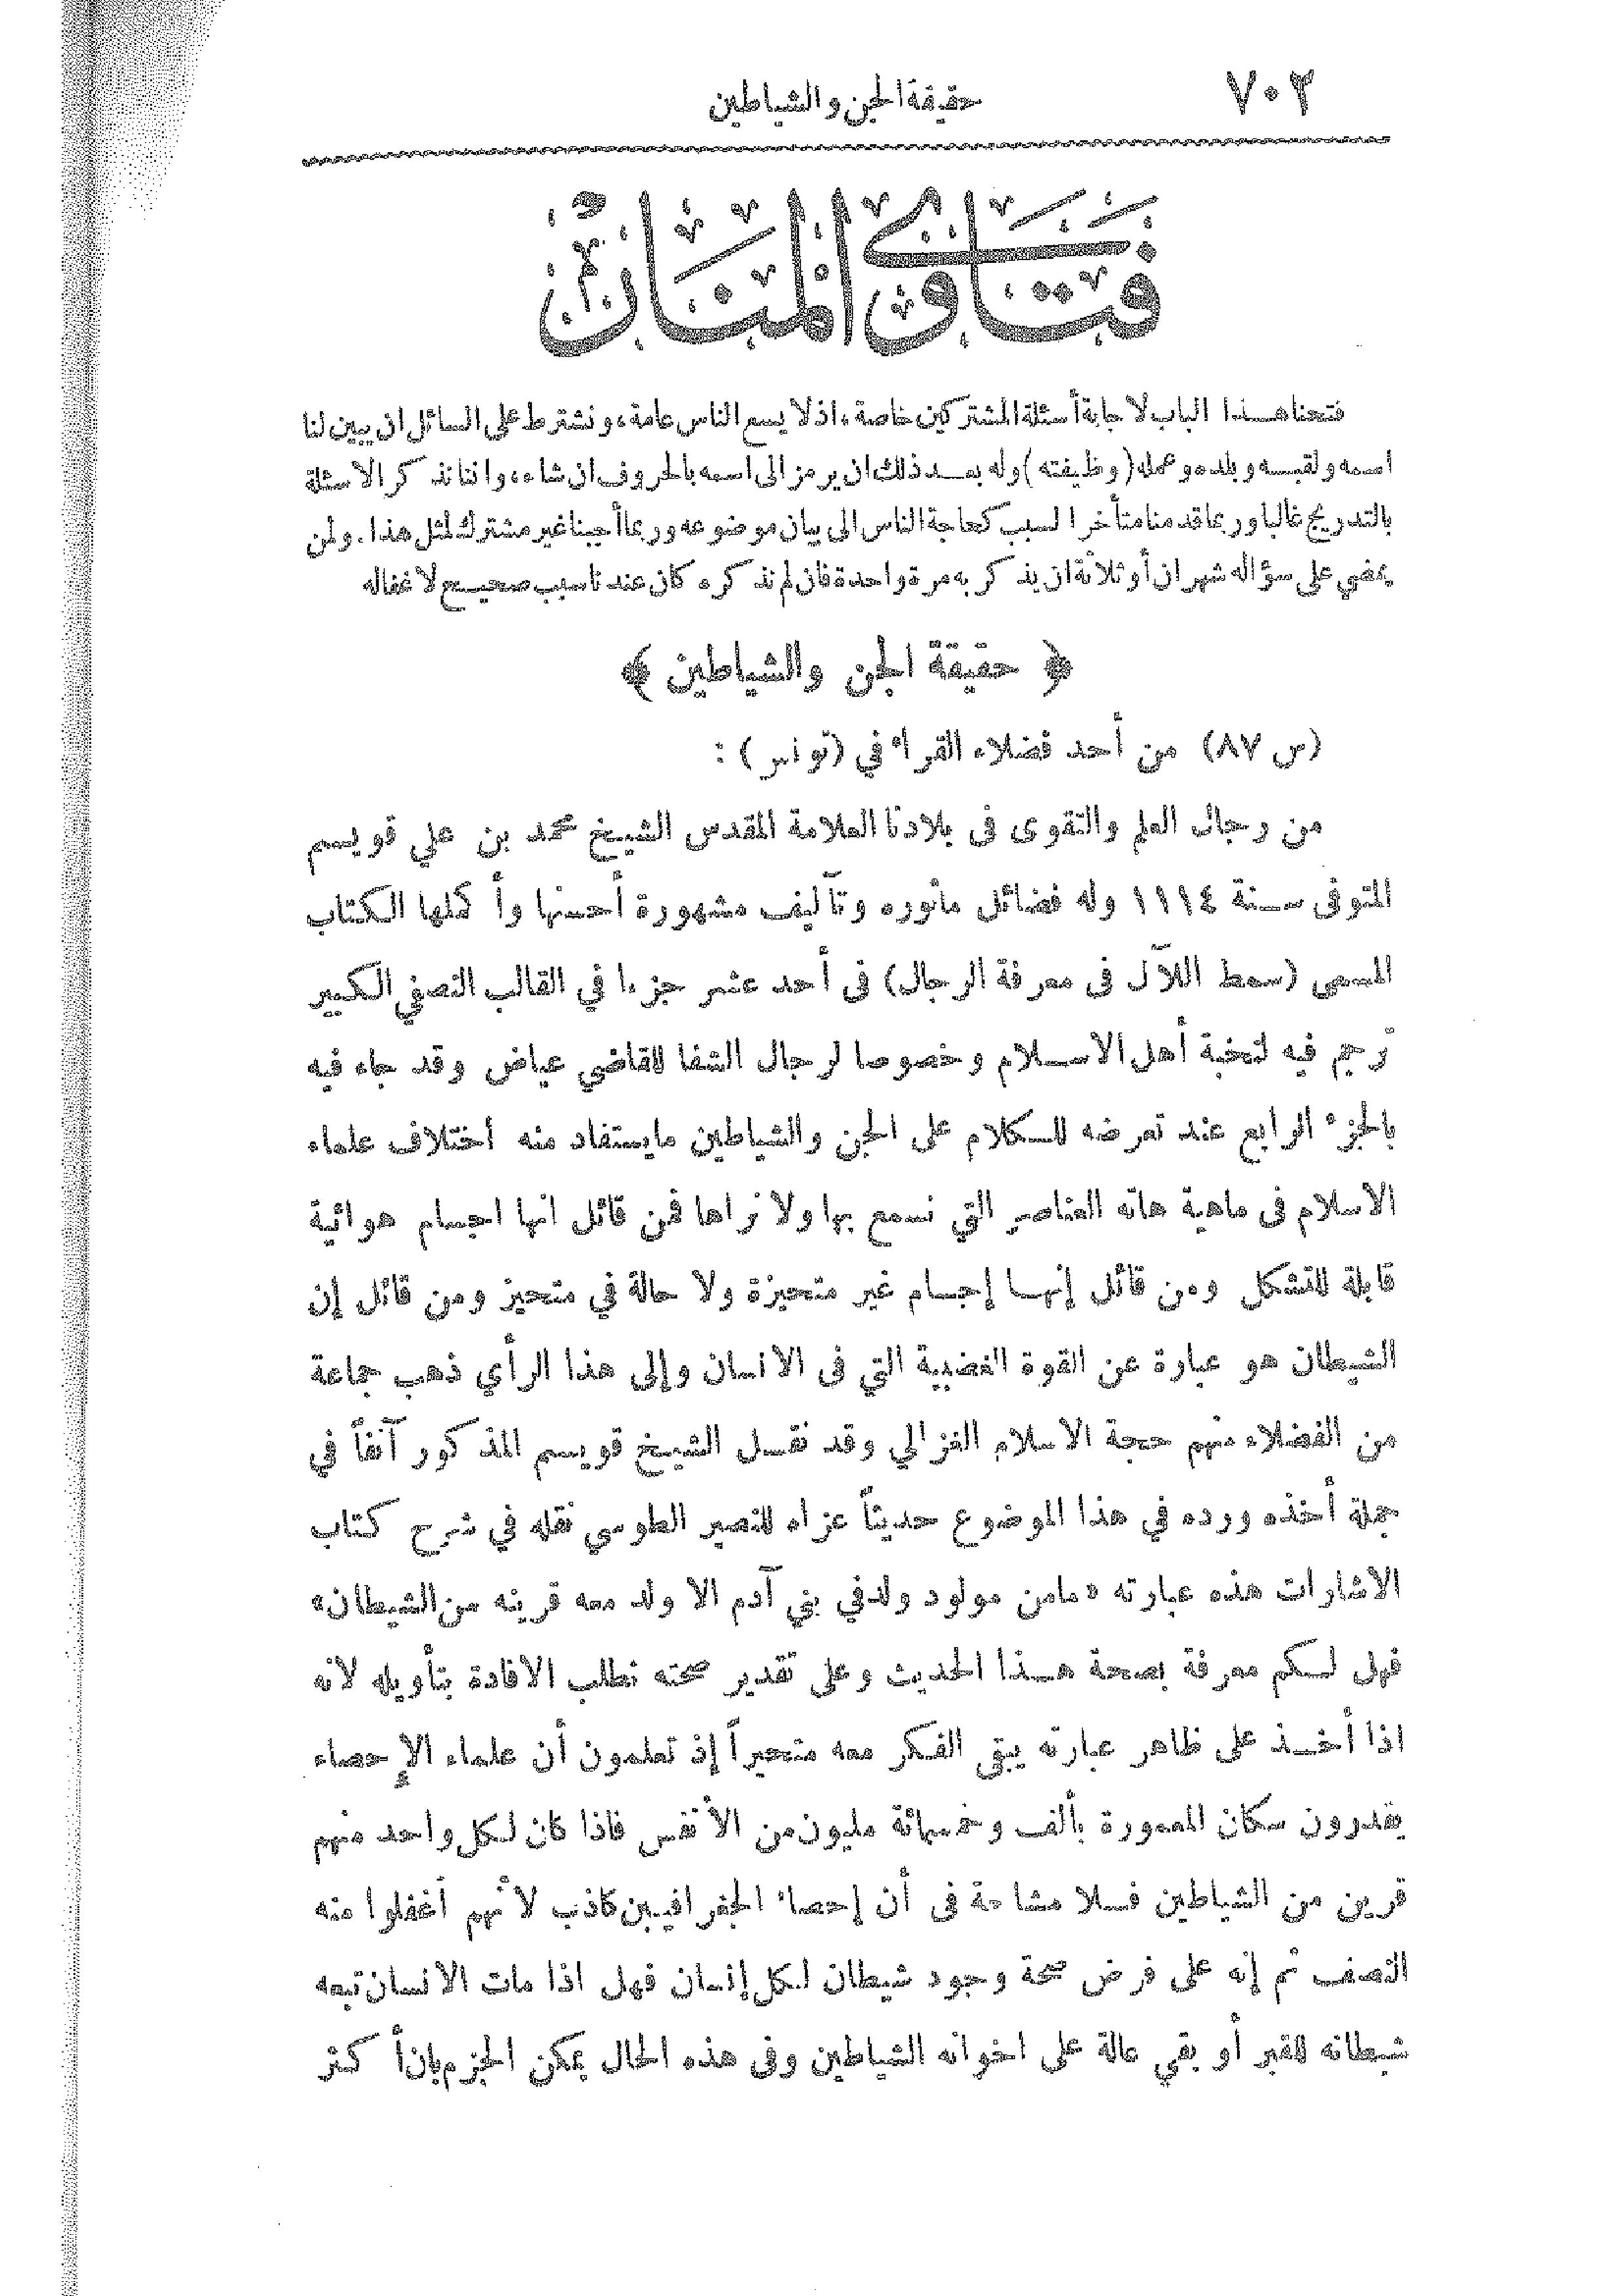 حقيقة الجن والشياطين ٧٠٢
فتاوى المنار
فتحنا هذا الباب لاجابة أسئلة المشتركين خاصة، اذ لا يسع الناس عامة، ونشترط على السائل ان يبين لنا
اسمه ولقبه وبلده وعمله (وظيفته) وله بعد ذلك ان يرمز الى اسمه بالحروف ان شاء، واننا نذكر الاسئلة
بالتدريج غالبا وربما قدمنا متأخرا لسبب كحاجة الناس الى بيان موضوعه وربما أجبنا غير مشترك لمثل هذا. ولمن
يمضي على سؤاله شهران أو ثلاثة ان يذكر به مرة واحدة فان لم نذكره كان عندنا سبب صحيح لاغفاله
﴿ حقيقة الجن والشياطين ﴾
(س ٨٧) من أحد فضلاء القراء في (تونس) :
من رجال العلم والتقوى فى بلادنا العلامة المقدس الشيخ محمد بن علي قويسم
المتوفى سنة ١١١٤ وله فضائل مأثوره وتآليف مشهورة أحسنها وأكملها الكتاب
المسمى (سمط اللآل فى معرفة الرجال) فى أحد عشر جزءا في القالب النصفي الكبير
ترجم فيه لنخبة أهل الاسلام وخصوصا لرجال الشفا للقاضي عياض وقد جاء فيه
بالجزء الرابع عند تعرضه للكلام على الجن والشياطين مايستفاد منه اختلاف علماء
الاسلام فى ماهية هاته العناصر التي نسمع بها ولا نراها فمن قائل انها اجسام هوائية
قابلة للتشكل ومن قائل إنها إجسام غير متحيزة ولا حالة في متحيز ومن قائل إن
الشيطان هو عبارة عن القوة الغضبية التي فى الانسان وإلى هذا الرأي ذهب جماعة
من الفضلاء منهم حجة الاسلام الغزالي وقد نقل الشيخ قويسم المذكور آنفاً في
جملة أخذه ورده في هذا الموضوع حديثاً عزاه للنصير الطوسي نقله في شرح كتاب
الاشارات هذه عبارته «مامن مولود ولد في بني آدم الا ولد معه قرينه من الشيطان»
فهل لكم معرفة بصحة هذا الحديث وعلى تقدير صحته نطلب الافادة بتأويله لانه
اذا أخذ على ظاهر عبارته يبقى الفكر معه متحيراً إذ تعلمون أن علماء الإحصاء
يقدرون سكان المعمورة بألف وخمسمائة مليون من الأنفس فاذا كان لكل واحد منهم
قرين من الشياطين فلا مشاحة فى أن إحصاء الجغرافيين كاذب لأنهم أغفلوا منه
النصف ثم إنه على فرض صحة وجود شيطان لكل إنسان فهل اذا مات الانسان تبعه
شيطانه للقبر أو بقي عالة على اخوانه الشياطين وفى هذه الحال يمكن الجزم بان أكثر